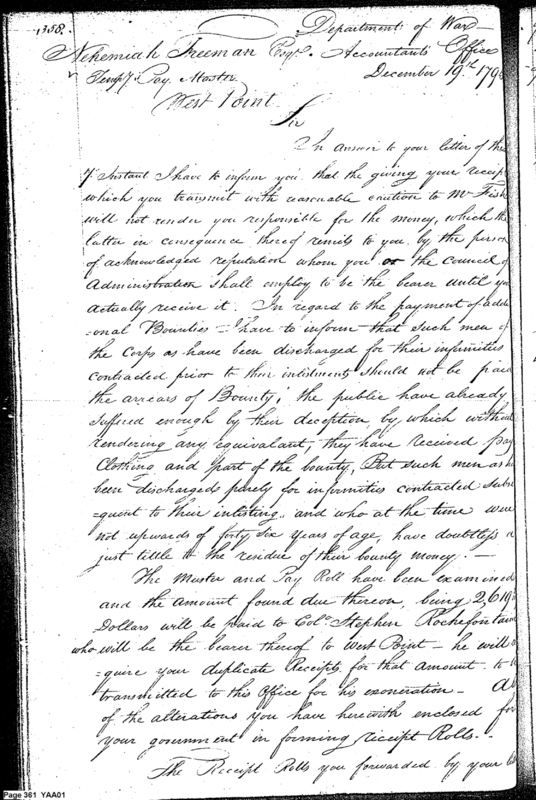 1358.
Department of War
Nehemiah Freeman Esqr. Accountants Office
Tempy Pay Master December 19th 179
West Point
Sir
In answer to your letter of the
7 Instant I have to inform you that the giving your receip
which you transmit with reasonable caution to Mr Fish
will not render you responsible for the money, which the
latter in consequence thereof remits to you, by the person
of acknowledged reputation whom you or the council of
Administration shall employ to be the bearer until yo
actually receive it. In regard to the payment of addi
=onal Bounties I have to inform that such men of
the Corps as have been discharged for their infirmities
contracted prior to their inlistments should not be paid
the arrears of Bounty, the public have already
suffered enough by their deception, by which without
rendering any equivalant, they have received pay
Clothing and part of the bounty, But such men as ha
been discharged purely for infirmities contracted subse
=quent to their inlisting, and who at the time were
not upwards of forty six years of age, have doubtless a
just title to the residue of their bounty money. —
The Muster and Pay Roll have been examined
and the amount found due thereon, being 2,619
Dollars will be paid to Colo Stephen Rochefontain
who will be the bearer thereof to West Point — he will re
=quire your duplicate Receipts for that amount to be
transmitted to this Office for his exoneration —
of the alterations you have herewith enclosed for
your goverment in forming receipt Rolls. —
The Receipt Rolls you forwarded by your
Page 361 YAA01